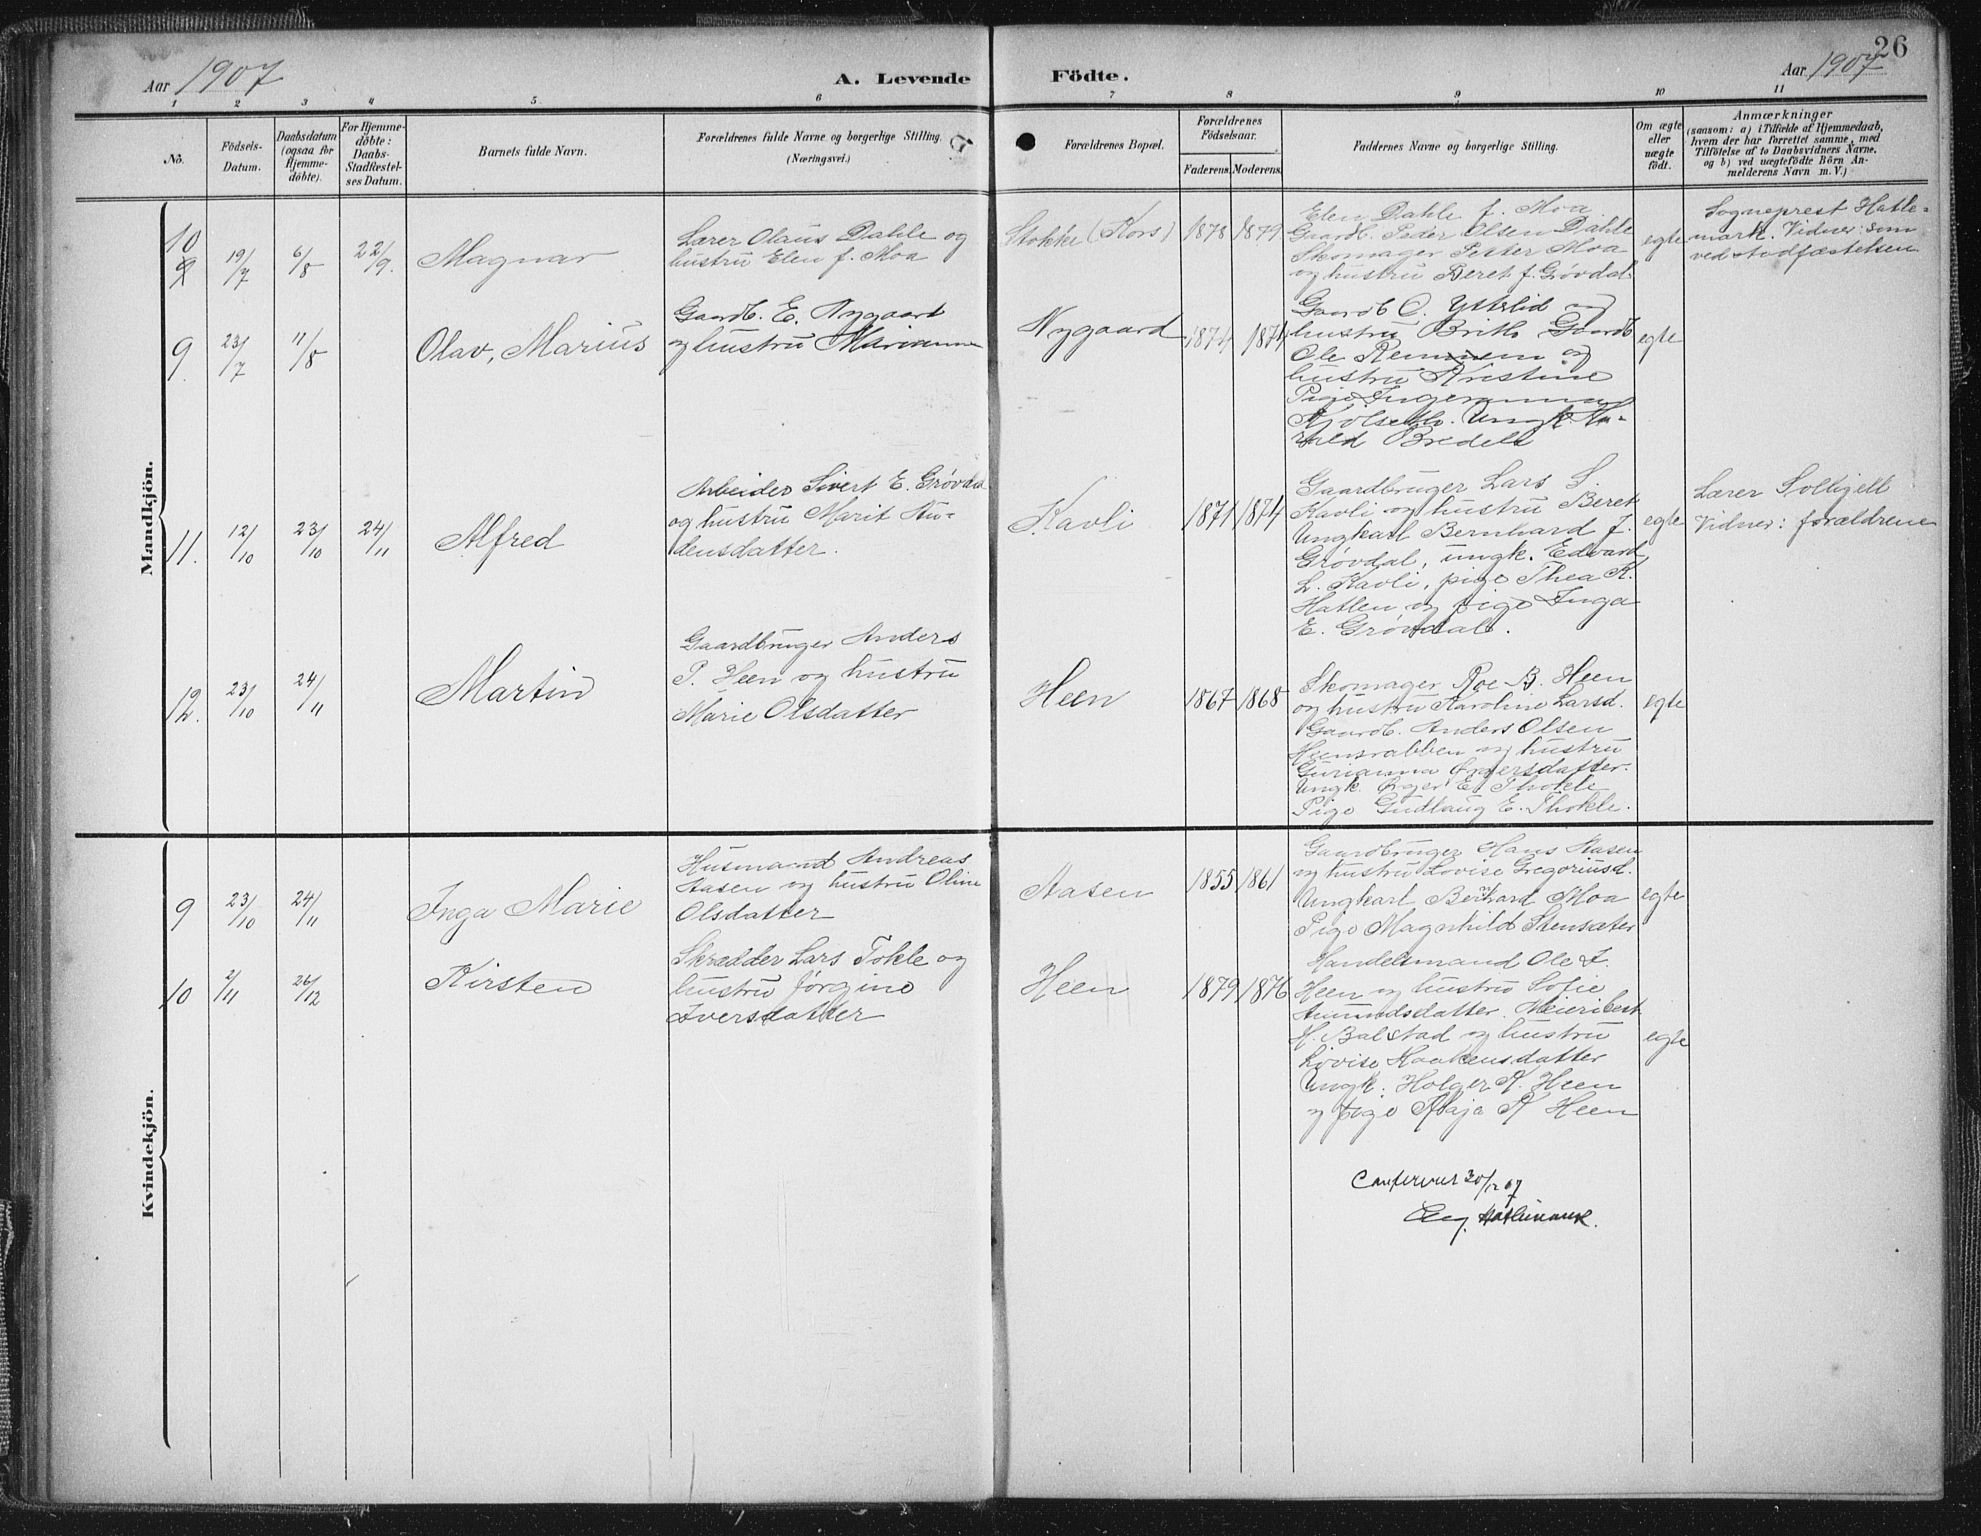 26
Aar 1907
A. Levende Födte.
Aar 1907
1 2 3 4 5 6 7 8 9 10 11
No.
Födsels-
Datum.
Daabsdatum
(ogsaa for
Hjemme-
döbte).
For Hjemme-
döbte:
Daabs-
Stadfæstel-
ses Datum.
Barnets fulde Navn.
Forældrenes fulde Navne og borgerlige Stilling.
(Næringsvei.)
Forældrenes Bopæl.
Forældrenes
Födselsaar.
Faderens. Moderens.
Faddernes Navne og borgerlige Stilling.
Om ægte
eller
uægte
födt.
Anmærkninger
(saasom: a) i Tilfælde af Hjemmedaab,
hvem der har forrettet samme, med
Tilföielse af to Daabsvidners Navne,
og b) ved uægtefödte Börn An-
melderens Navn m. V.)
Mandkjön.
10
19/7 6/8 22/9.
Magnar
Lærer Olaus Dahle og
hustru Elen f. Moa
Stokke (Kors)
1878 1879
Elen Dahle f. Moa
Gaardb. Peder Olsen Dahle
Skomager Petter Moa
og hustru Beret f. Grøvdal
egte
Sogneprest Hatle-
mark. Vidner: som
ved stadfæstelsen
9.
23/7 11/8
Olav, Marius
Gaardb. E. Nygaard
og hustru Marianne
Nygaard
1874 1874
Gaardb O. Ysterlid og
hustru Brith Gaardb
Ole Remmem og
hustru Kristine
Pige Ingeranna
Kjölseth. Ungk. Ha-
rald Bredeli
egte
11.
12/10 23/10 24/11
Alfred
Arbeider Sivert E. Grøvdal
og hustru Marit Au-
densdatter.
Kavli
1871 1874
Gaardbruger Lars S.
Kavli og hustru Beret
Ungkarl Bernhard J.
Grøvdal, ungk. Edvard
L. Kavli, pige Thea K.
Hatlen og pige Inga
E. Grøvdal.
egte
Lærer Soltijell
Vidner: forældrene
12.
23/10 24/11
Martin
Gaardbruger Anders
P. Heen og hustru
Marie Olsdatter
Heen
1867 1868
Skomager Roe B. Heen
og hustru Karoline Larsd.
Gaardb. Anders Olsen
Heensrabben og hustru
Gurianna Ørgersdatter.
Ungk. Ørger E. Thokle
Pige Gudlaug E. Thokle.
egte
Kvindekjön.
9
23/10 24/11
Inga Marie
Husmand Andreas
Aasen og hustru Oline
Olsdatter
Aasen
1855 1861
Gaardbruger Hans Aasen
og hustru Lovise Gregoriusd.
Ungkarl Bernhard Moa
Pige Magnhild Stensæter
egte
10
2/11 26/12
Kirsten
Skrædder Lars Tokle og
hustru Jørgine
Iversdatter
Heen
1879 1876
Handelsmand Ole I.
Heen og hustru Sofie
Amundsdatter. Meieribest.
H. Balstad og hustru
Lovise Haakensdatter
Ungk. Holger K. Heen
og pige Maja K Heen
egte
Confereret 30/12 07
Hatlemark.